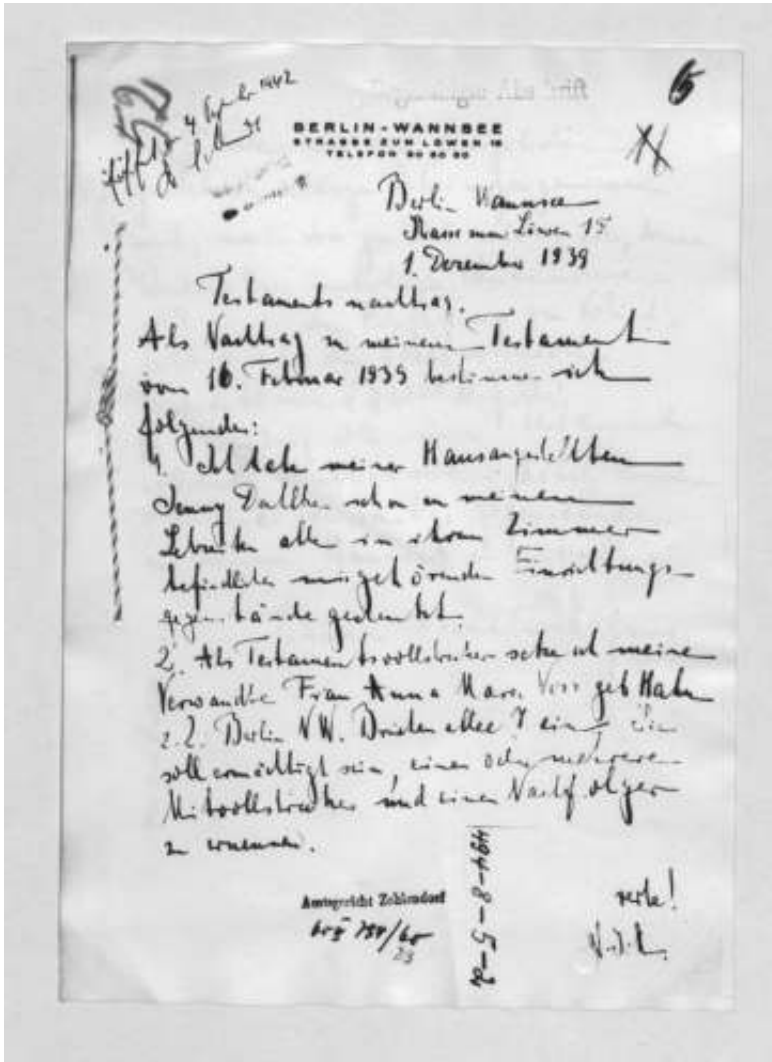 52
4. 1942
6
BERLIN-WANNSEE
STRASSE ZUM LÖWEN 15
TELEFON 80 60 50
Berlin Wannsee
Strasse zum Löwen 15
1. Dezember 1939
Testamentsnachtrag.
Als Nachtrag zu meinem Testament
vom 16. Februar 1939 bestimme ich
folgendes:
1. Ich habe meiner Hausangestellten
Jenny schon zu meinen
Lebzeiten alle in ihrem Zimmer
befindlichen mir gehörenden Einrichtungs-
gegenstände geschenkt.
2. Als Testamentsvollstrecker setze ich meine
Verwandte Frau Anna geb Hahn
z.Z. Berlin NW. allee 7 ein
soll ermächtigt sein, einen oder mehrere
Mitvollstrecker und einen Nachfolger
zu ernennen.
Amtsgericht Zehlendorf
494-8-5-2